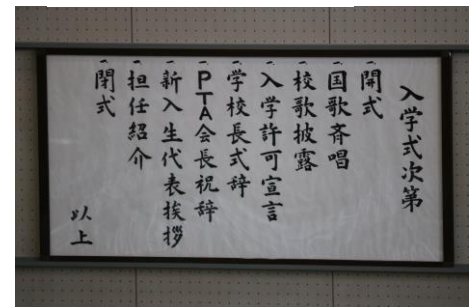 入学式次第
一開式
一国歌斉唱
一校歌披露
一入学許可宣言
一学校長式辞
一PTA会長祝辞
一新入生代表挨拶
一担任紹介
一閉式
以上